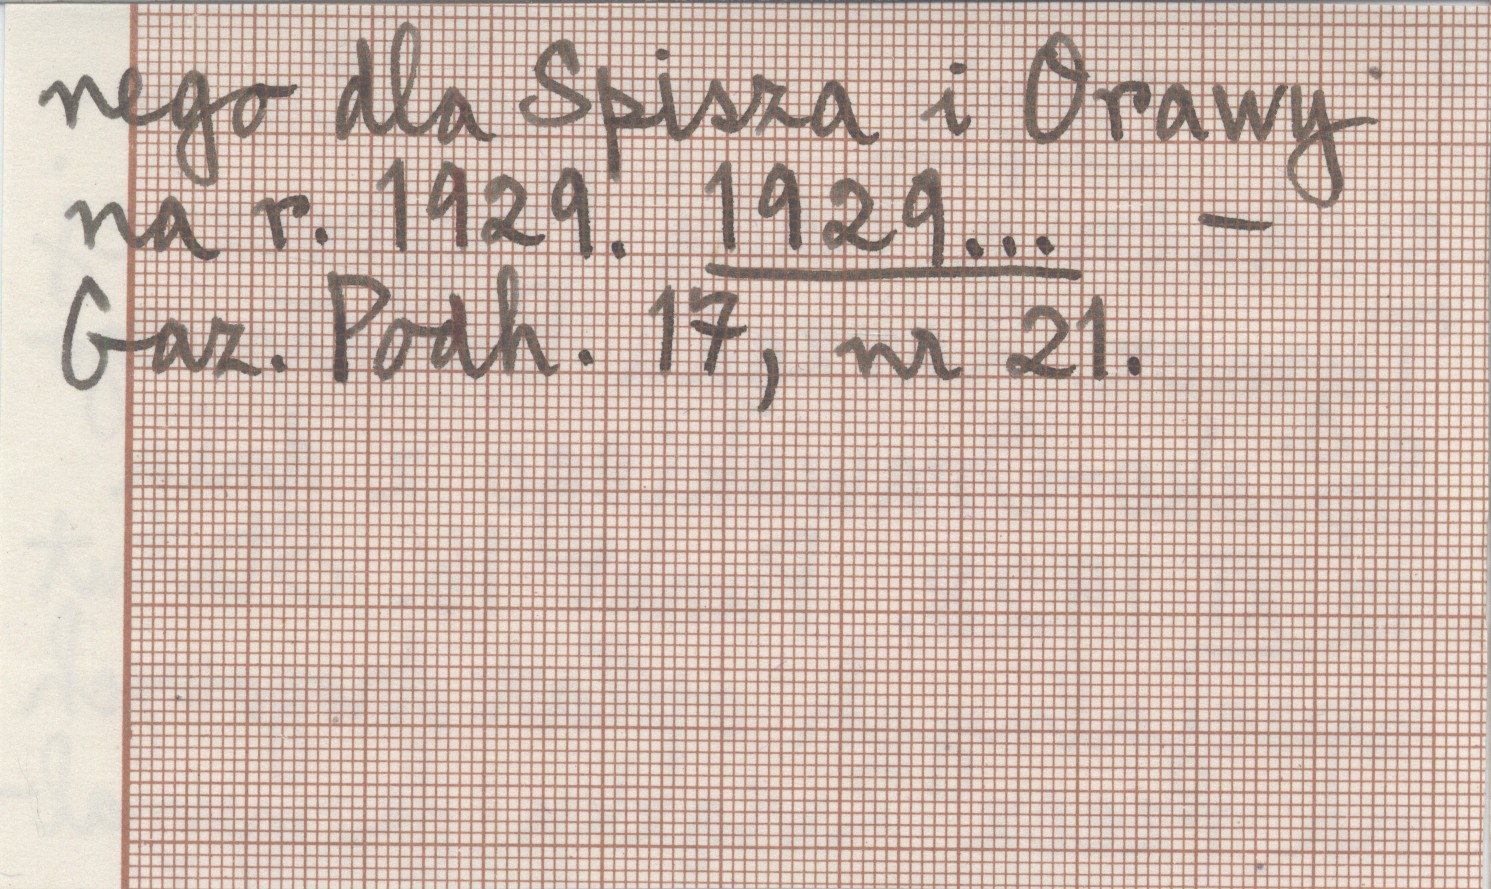 nego dla Spisza i Orawy
na r. 1929. 1929... –
Gaz. Podh. 17, nr 21.